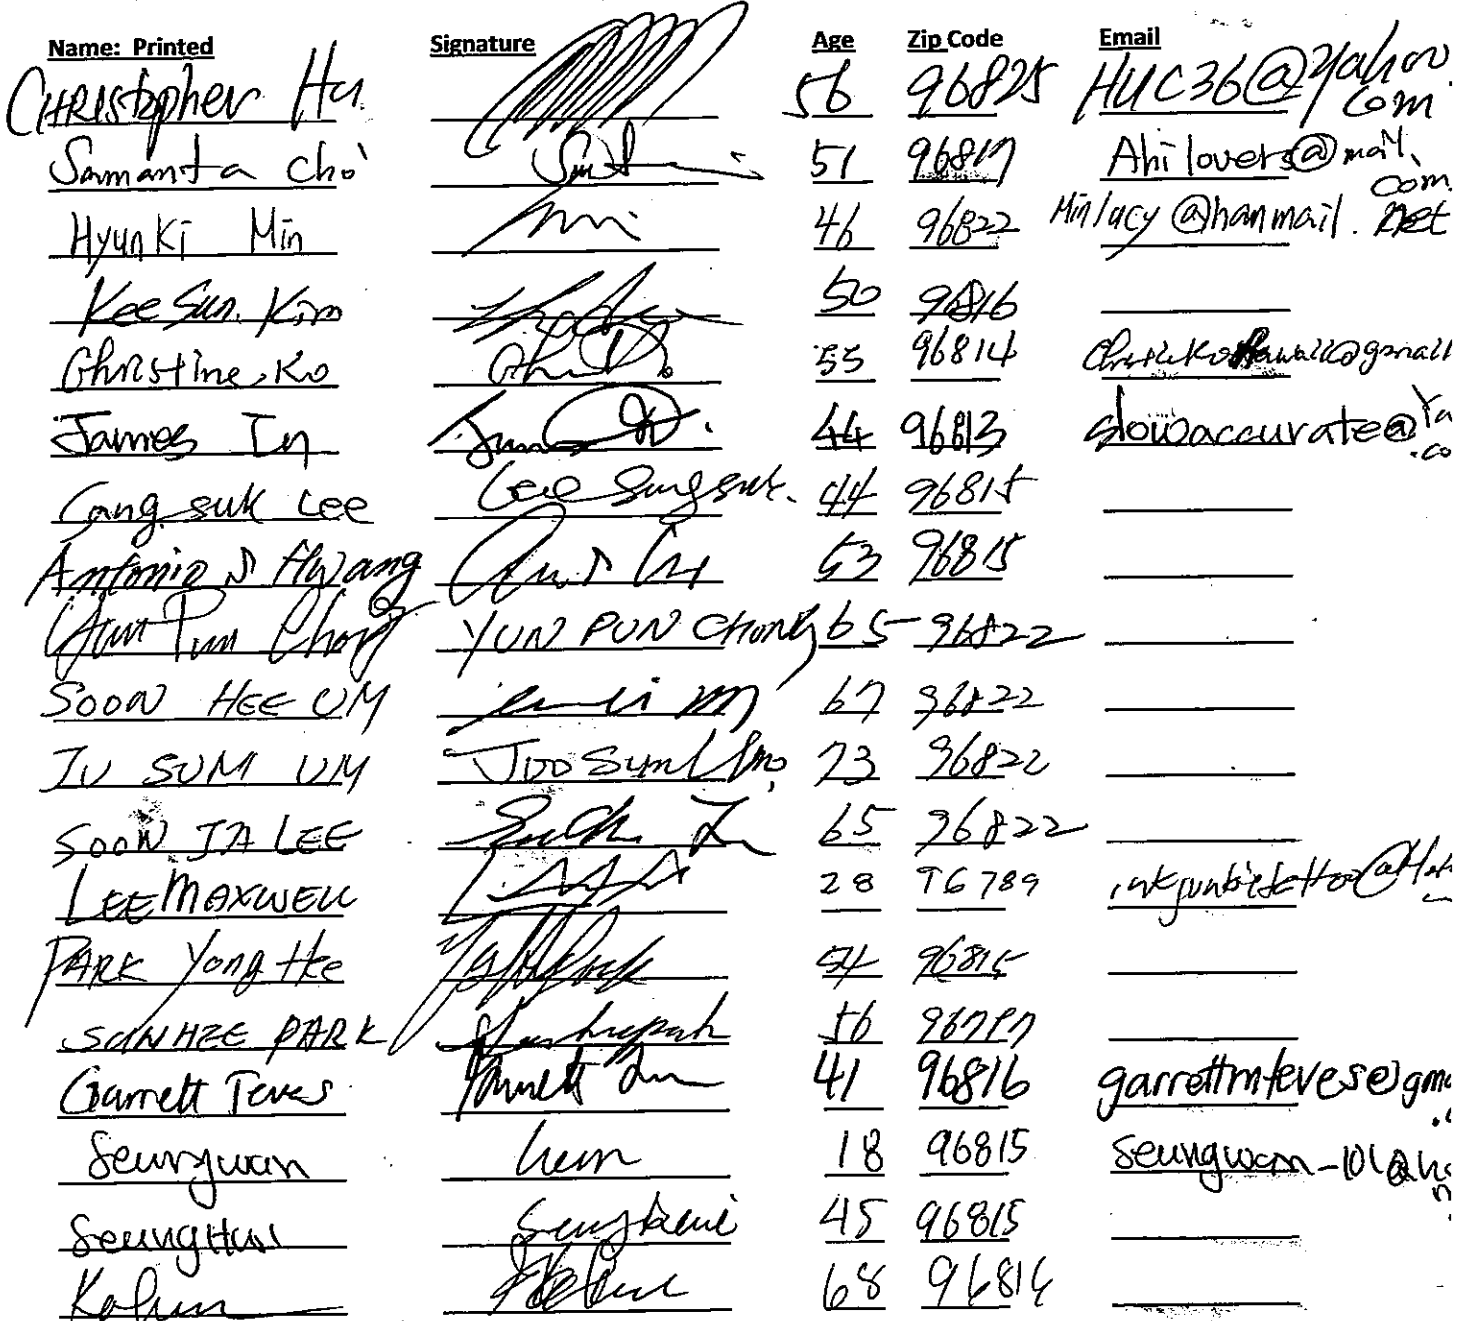 Name: Printed Signature Age Zip Code Email
CHRIStopher Hu 56 96825 HUC36@yahoo.com
Samanta Cho 51 96817 Ahilovers@mail.com
HyunKi Min 46 96822 Minlucy@hanmail.net
Kee Sun. Kim 50 96816
Christine Ko 55 96814
James In 44 96813 slowaccurate@Ya
.co
Cang suk Lee Lee Sung suk. 44 96815
Antonio S Hwang 53 96815
Yun Pun Chong YUN PUN CHONG 65 96822
SOON HEE UM 67 96822
JU SUM UM JOO Sum Um 73 96822
SOON JA LEE 65 96822
LEE MAXWELL 28 96789
PARK Yong Hee 54 96815
SUNHEE PARK 56 96797
Garrett Teves Garrett 41 96816 garrettmteves@gma
Seungwan 18 96815
SeungHun 45 96815
68